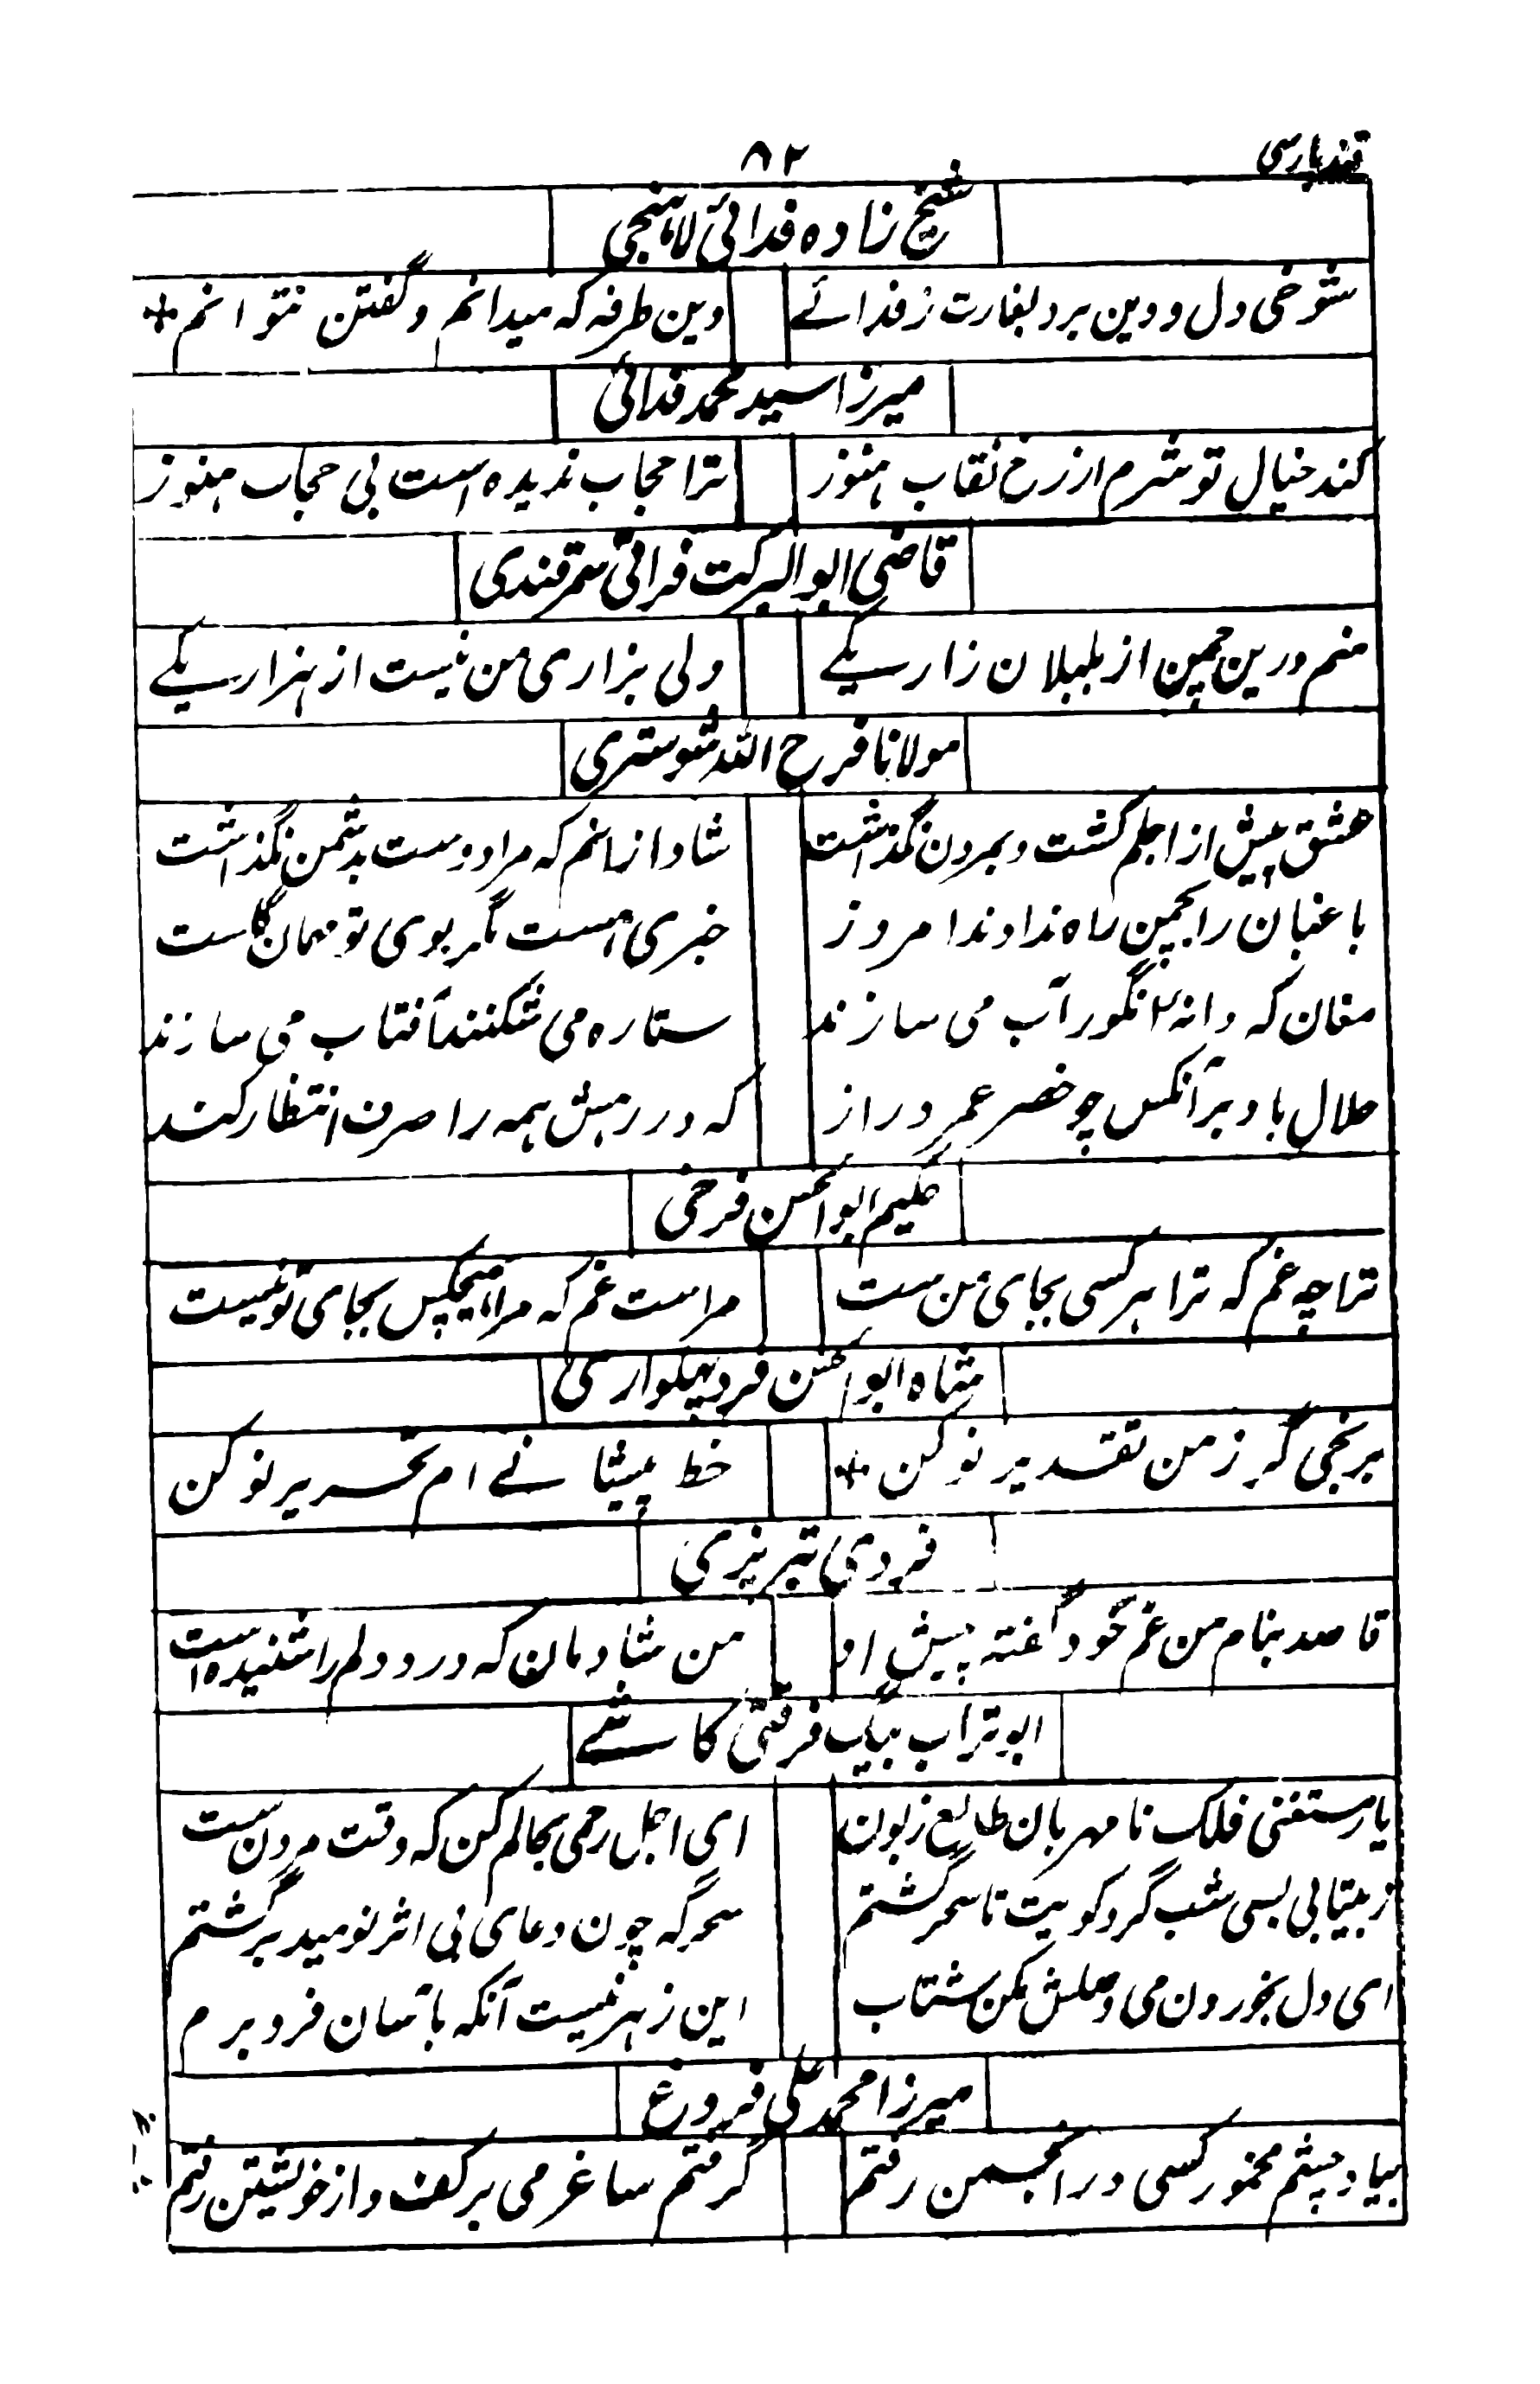 قند پارسی
۸۲
شیخ زاده فدائی لاہنجی
شوخی دل و دین برد بغارت ز فدائے
وین طرفہ کہ میدانم و گفتن نتوانم
میرزا سید محمد فدائی
کند خیال تو شرم از رخ نقاب ہنوز
ترا حجاب ندیدہ است بی حجاب ہنوز
قاضی ابو البرکت فراقی سمرقندی
منم درین چمن از بلبلان زار یکے
ولی بزاری من نیست از ہزار یکے
مولانا فرح اللہ شوستری
عشق پیش از اجلم کشت و بمردن نگذاشت
شاد ازانم کہ مرا دوست بدشمن نگذاشت
باغبان را بچمن راہ ندادند امروز
خبری ہست مگر بوی تو مہمان گلست
مغان کہ دانہ انگور آب می سازند
ستارہ می شکنند آفتاب می سازند
حلال باد بر آنکس چو خضر عمر دراز
کہ در رہش ہمہ را صرف انتظار کند
حکیم ابو الحسن فرخی
ترا چہ غم کہ ترا ہر کسی بجای من ست
مراست غم کہ مرا ہیچکس بجای تو نیست
شاہ ابو الحسن فرد پہلواری
برنجی گر ز من تقدیر نو کن
خط پیشانے ام تحریر نو کن
فردی تبریزی
قاصد بنام من غم خود گفتہ پیش او
من شادمان کہ درد دلم را شنیدہ است
ابو تراب بیگ فرقتی کاشے
یار مستغنی فلک نا مہربان طالع زبون
ای اجل رحمی بحالم کن کہ وقت مردن ست
ز بیتابی بسی شب گرد کویت تا سحر گشتم
سحرگہ چون دعای بی اثر نومید برگشتم
ای دل بخوردن می وصلش مکن شتاب
این زہر نیست آنکہ بآسان فرو برم
میرزا محمد علی فروغ
بیاد چشم مخمور کسی در انجمن رفتم
گرفتم ساغر می بر کف و از خویشتن رفتم